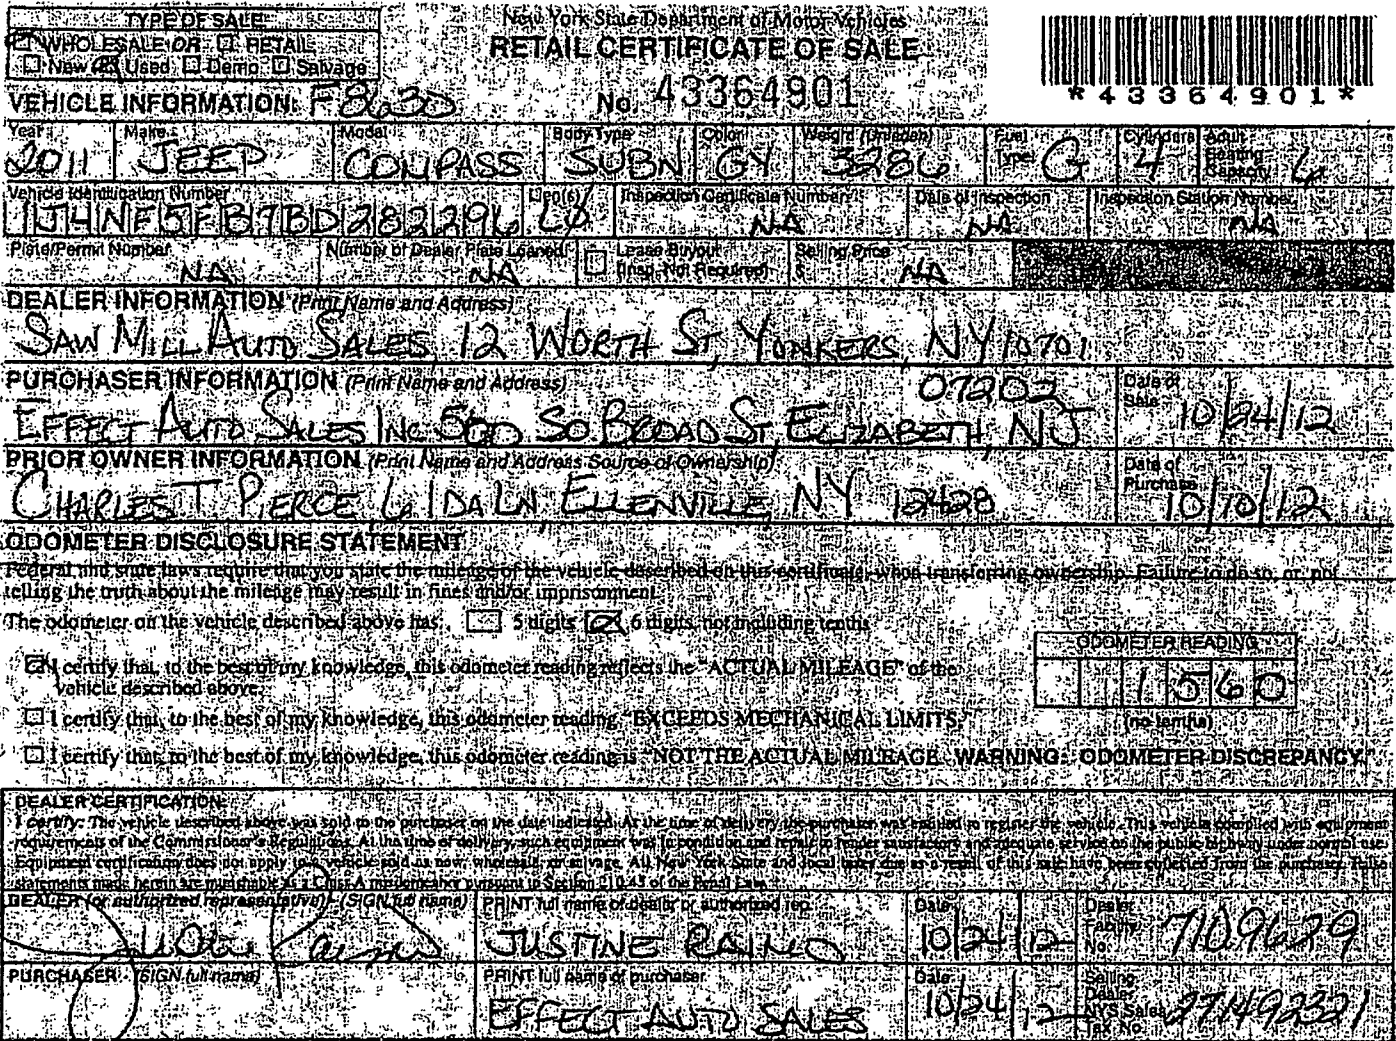 TYPE OF SALE
WHOLESALE OR RETAIL
New Used Demo Salvage
New York State Department of Motor Vehicles
RETAIL CERTIFICATE OF SALE
No. 43364901
*43364901*
VEHICLE INFORMATION: F8630
Year Make Model Body Type Color Weight (Unladen) Fuel Type Cylinders Adult Seating Capacity
2011 JEEP COMPASS SUBN GY 3286 G 4 6
Vehicle Identification Number Lien(s) Inspection Certificate Number Date of Inspection Inspection Station Number
1J4NF5FB7BD282296 NA NA NA
Plate/Permit Number Number of Dealer Plate Loaned Lease Buyout (Insp. Not Required) Selling Price
NA NA $ NA
DEALER INFORMATION (Print Name and Address)
SAW MILL AUTO SALES, 12 WORTH ST, YONKERS, NY 10701
PURCHASER INFORMATION (Print Name and Address) 07202 Date of Sale
EFFECT AUTO SALES INC 500 SO BROAD ST, ELIZABETH, NJ 10/24/12
PRIOR OWNER INFORMATION (Print Name and Address-Source of Ownership) Date of Purchase
CHARLES T PIERCE, 6 IDA LN, ELLENVILLE, NY 12428 10/10/12
ODOMETER DISCLOSURE STATEMENT
Federal and state laws require that you state the mileage of the vehicle described on this certificate, when transferring ownership. Failure to do so, or not
telling the truth about the mileage may result in fines and/or imprisonment.
The odometer on the vehicle described above has: 5 digits 6 digits, not including tenths
ODOMETER READING
1560
(no tenths)
I certify that, to the best of my knowledge, this odometer reading reflects the "ACTUAL MILEAGE" of the
vehicle described above.
I certify that, to the best of my knowledge, this odometer reading "EXCEEDS MECHANICAL LIMITS."
I certify that, to the best of my knowledge, this odometer reading is "NOT THE ACTUAL MILEAGE. WARNING: ODOMETER DISCREPANCY."
DEALER CERTIFICATION:
I certify: The vehicle described above was sold to the purchaser on the date indicated. At the time of delivery the purchaser was entitled to register the vehicle. This vehicle complied with equipment
requirements of the Commissioner's Regulations. At the time of delivery, such equipment was in condition and repair to render satisfactory and adequate service on the public highway under normal use.
Equipment certification does not apply to a vehicle sold as new, wholesale, or salvage. All New York State and local taxes due as a result of this sale have been collected from the purchaser. False
statements made herein are punishable as a Class A misdemeanor pursuant to Section 210.45 of the Penal Law.
DEALER (or authorized representative) (SIGN full name) PRINT full name of dealer or authorized rep. Date Dealer Facility No.
JUSTINE RAINO 10/24/12 7109629
PURCHASER (SIGN full name) PRINT full name of purchaser Date Selling Dealer NYS Sales Tax No.
EFFECT AUTO SALES 10/24/12 271492321